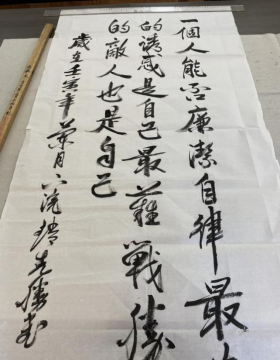 一個人能否廉潔自律最
的誘惑是自己最難戰勝
的敵人也是自己
歲在壬寅年蘭月六浣